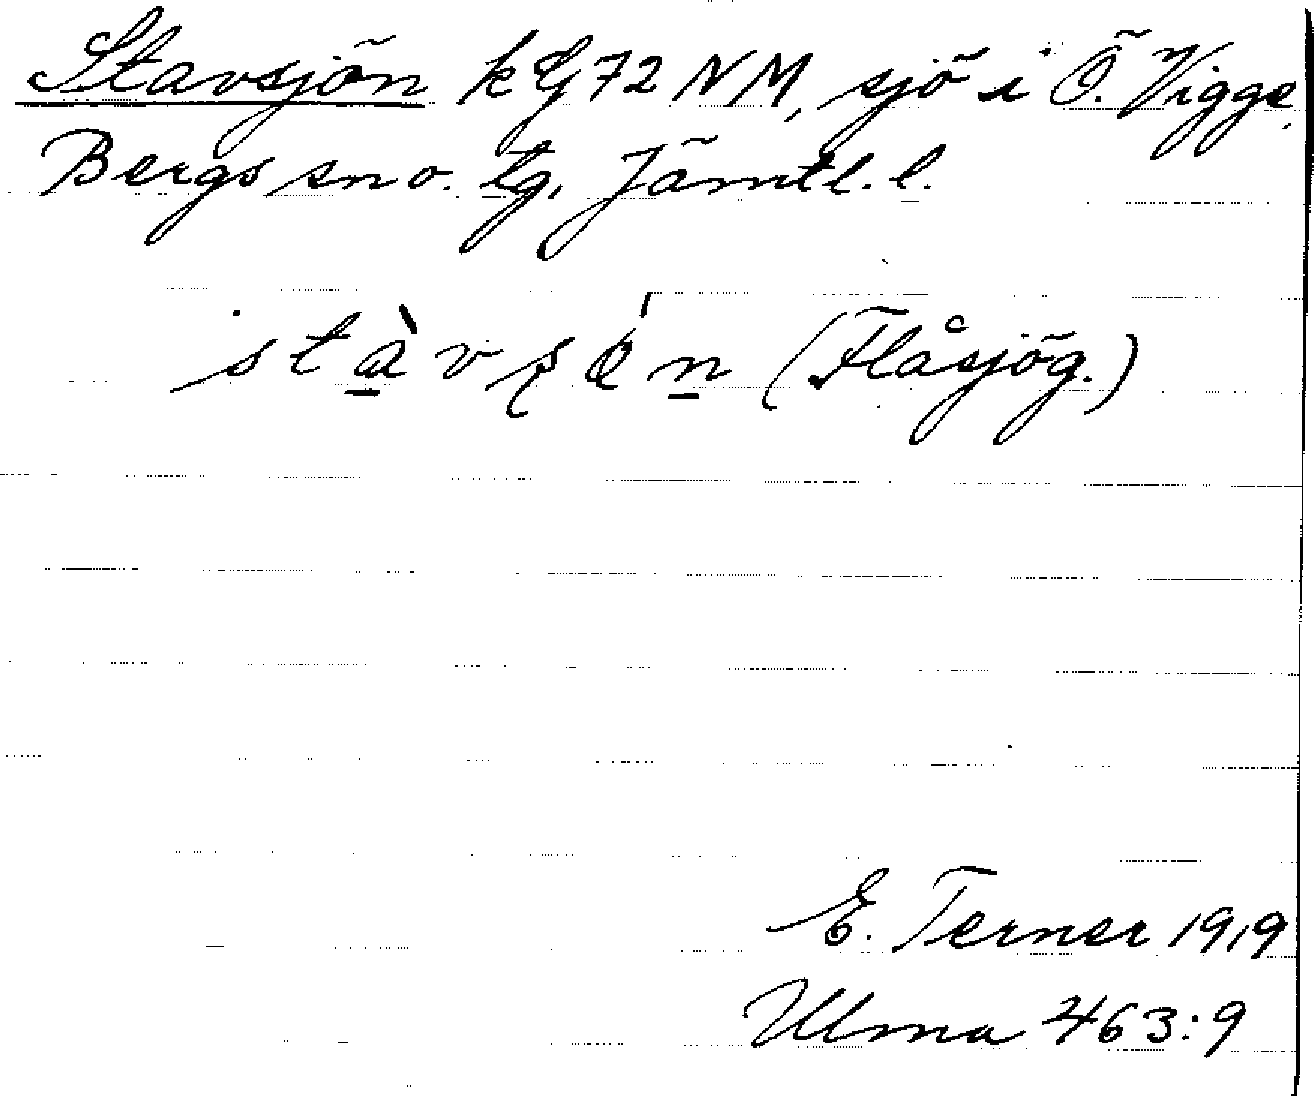 Stavsjön kg 72 NM, sjö i Ö. Vigge,
Bergs sn o. tg, Jämtl. l.
(Flåsjög.)
E. Terner 1919
Ulma 463:9